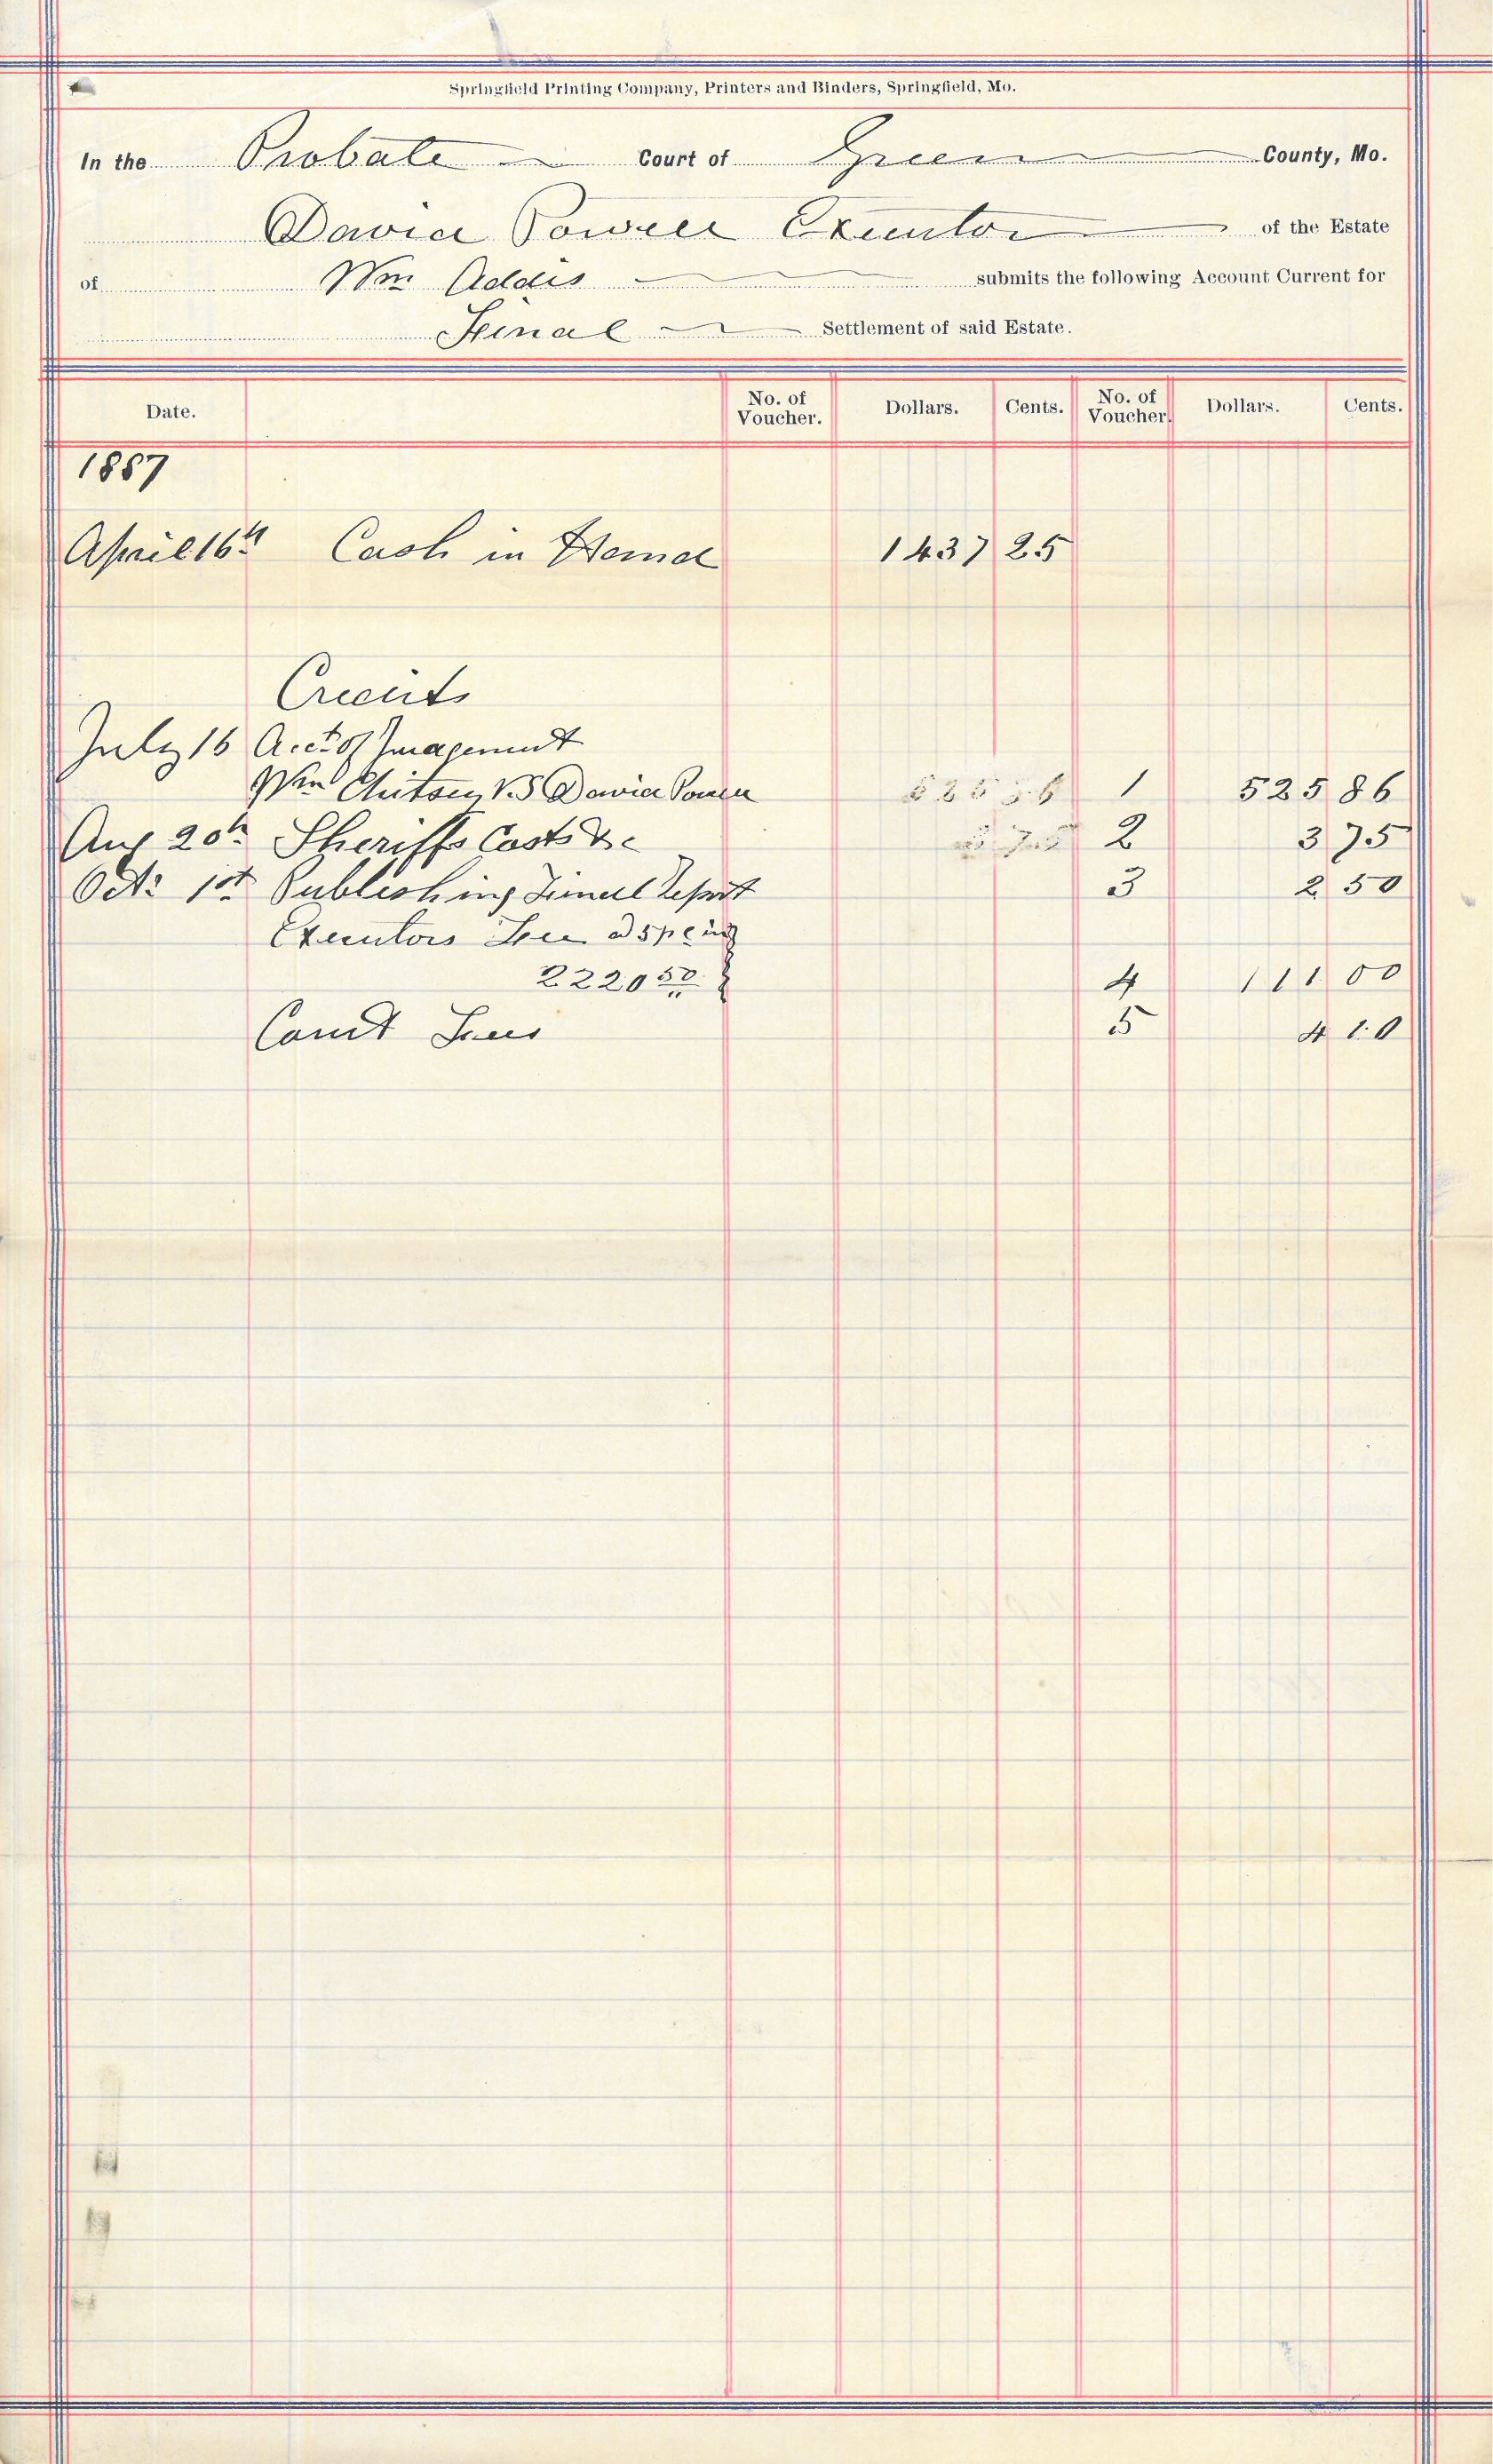 Springfield Printing Company, Printers and Binders, Springfield, Mo.
In the Probate Court of Green County, Mo.
David Powell Executor of the Estate
of Wm Addis submits the following Account Current for
Final Settlement of said Estate.
Date. No. of Voucher. Dollars. Cents. No. of Voucher. Dollars. Cents.
1887
April 16th Cash in Hand 1437 25
Credits
July 16 Acct of Judgement
Wm Vs David Powell 1 525 86
Aug 20th Sheriffs Costs &c 2 3 75
Oct. 1st Publishing Final Report 3 2 50
Executors Fee @ 5 per cent
2220 50 4 111 00
Court Fees 5 4 10